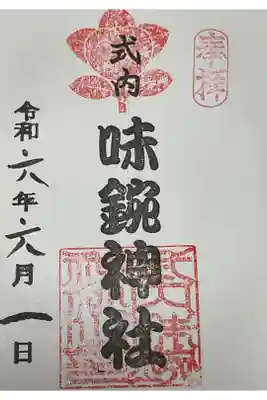 奉拝
式内
味鋺神社
令和・六年・六月一日